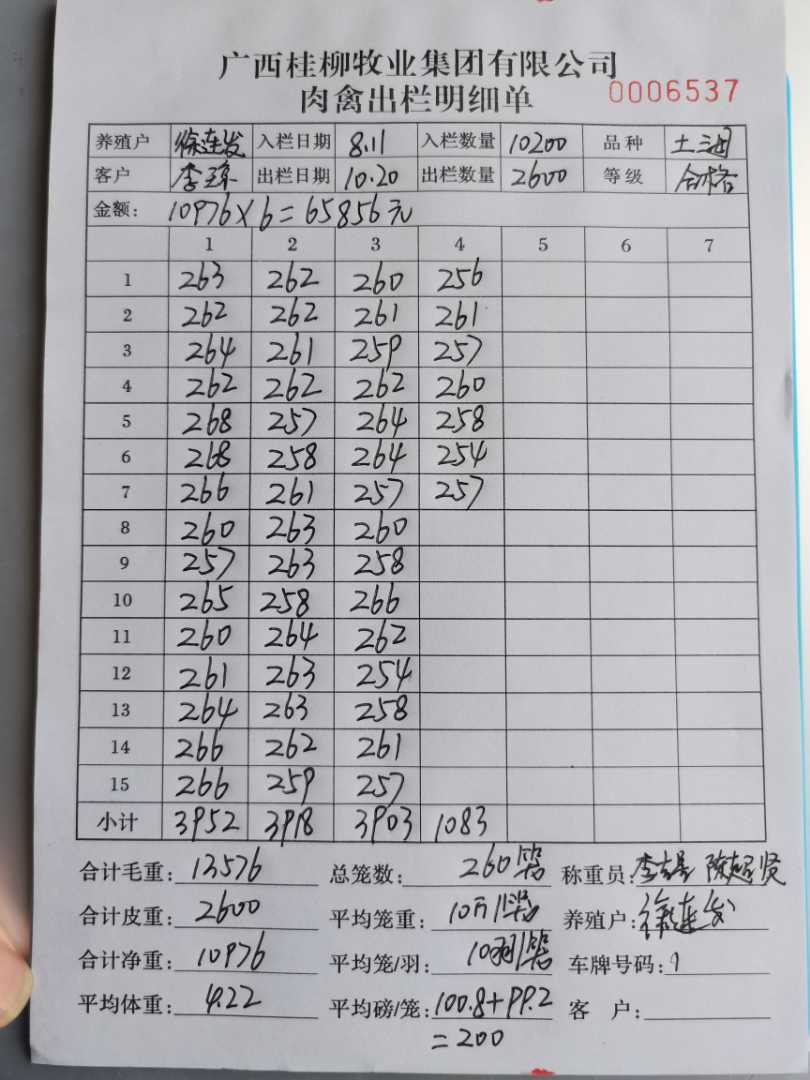 广西桂柳牧业集团有限公司
肉禽出栏明细单 0006537
养殖户 徐连发 入栏日期 8.11 入栏数量 10200 品种 土三
客户 李 出栏日期 10.20 出栏数量 2600 等级 合格
金额: 10976×6=65856元
1 2 3 4 5 6 7
1 263 262 260 256
2 262 262 261 261
3 264 261 259 257
4 262 262 262 260
5 268 257 264 258
6 268 258 264 254
7 266 261 257 257
8 260 263 260
9 257 263 258
10 265 258 266
11 260 264 262
12 261 263 254
13 264 263 258
14 266 262 261
15 266 259 257
小计 3952 3918 3903 1083
合计毛重: 13576 总笼数: 260笼 称重员: 李 陈超贤
合计皮重: 2600 平均笼重: 10斤/笼 养殖户: 徐连发
合计净重: 10976 平均笼/羽: 10羽/笼 车牌号码:
平均体重: 4.22 平均磅/笼: 100.8+99.2 客 户:
=200